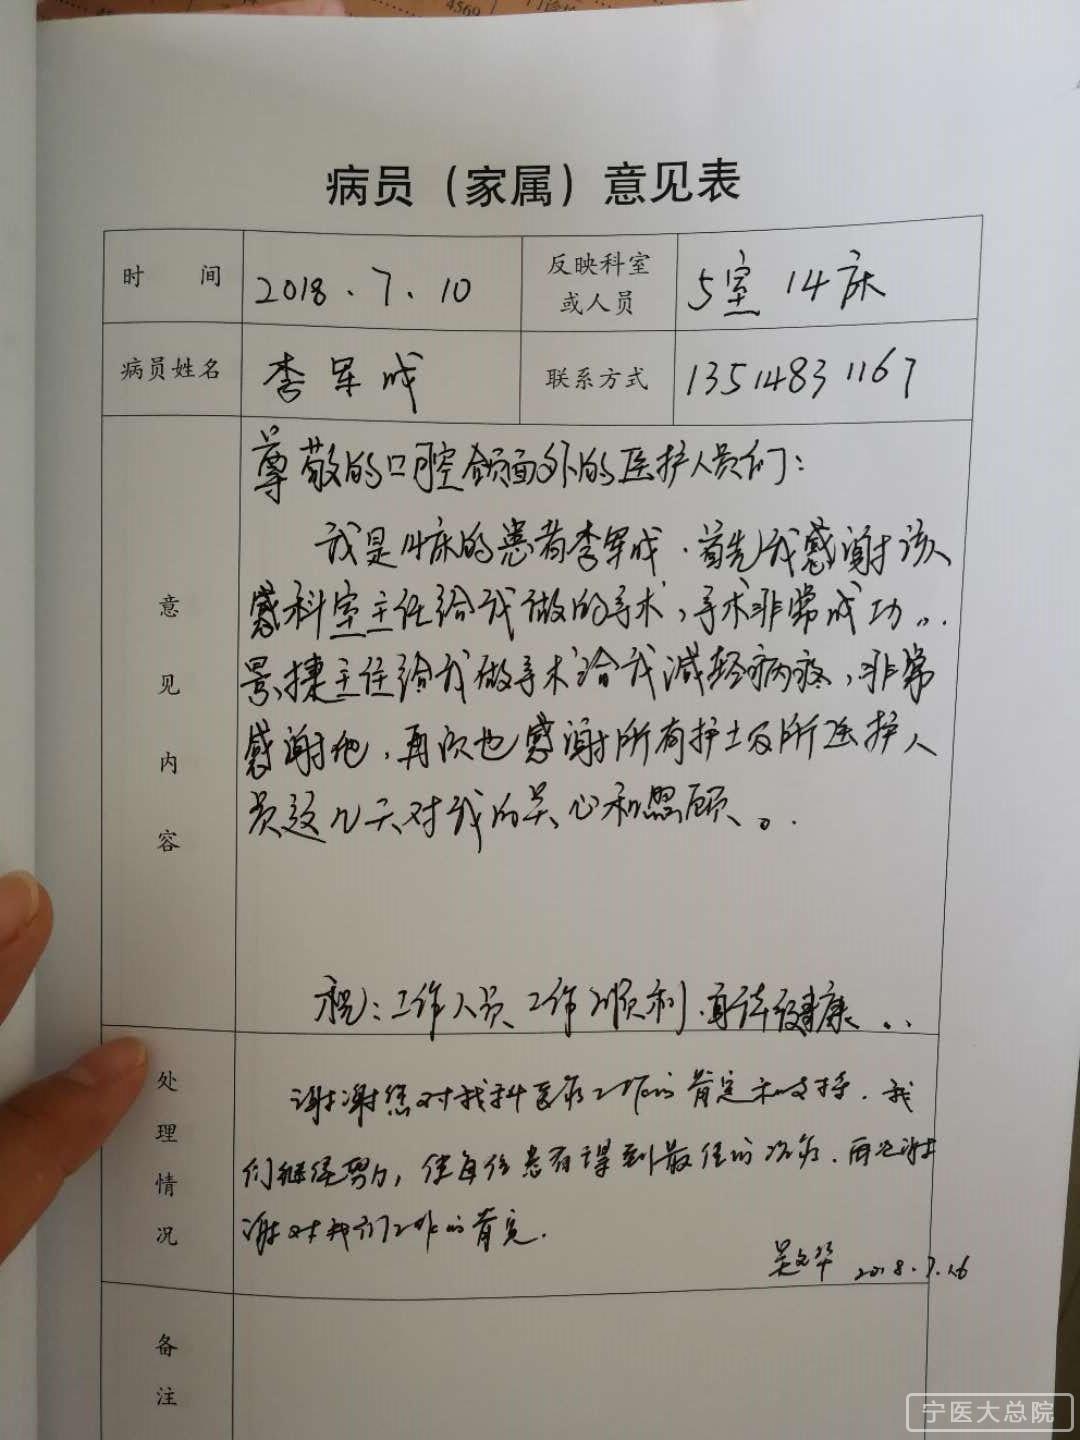 4569
病员（家属）意见表
时 间
2018.7.10
反映科室
或人员
5室 14床
病员姓名
李军成
联系方式
13514831167
意见内容
尊敬的口腔颌面外的医护人员们：
我是14床的患者李军成.首先我感谢该
科室主任给我做的手术,手术非常成功..
景捷主任给我做手术给我减轻病疼,非常
感谢他,再次也感谢所有护士及所医护人
员这几天对我的关心和照顾。.
祝:工作人员工作顺利.身体健康..
处理情况
谢谢您对我科医疗工作的肯定和支持.我
们继续努力,使每位患者得到最佳的治疗.再次谢
谢对我们工作的肯定.
吴文华 2018.7.16
备注
宁医大总院